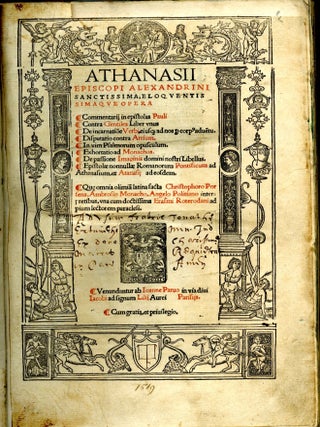 ATHANASII
EPISCOPI ALEXANDRINI
SANCTISSIMA, ELOQVENTIS
SIMAQVE OPERA
Commentarij in epistolas Pauli
Contra Gentiles Liber vnus
De incarnatiõe Verbi eiusq; ad nos p corp⁹ aduẽtu.
Disputatio contra Arrium
In vim Psalmorum opusculum.
Exhortatio ad Monachos
De passione Imaginis domini nostri Libellus.
Epistolæ nonnullæ Romanorum Pontificum ad
Athanasium, et Athanasij ad eosdem.
Quę omnia olim iã latina facta Christophoro Por
sena, Ambrosio Monacho, Angelo Politiano inter
pretibus, vna cum doctissima Erasmi Roterodami ad
pium lectorem paraclesi.
Venundantur ab Ioanne Paruo in via diui
Iacobi ad signum Lilij Aurei Parisijs.
Cum gratia, et priuilegio.
1519